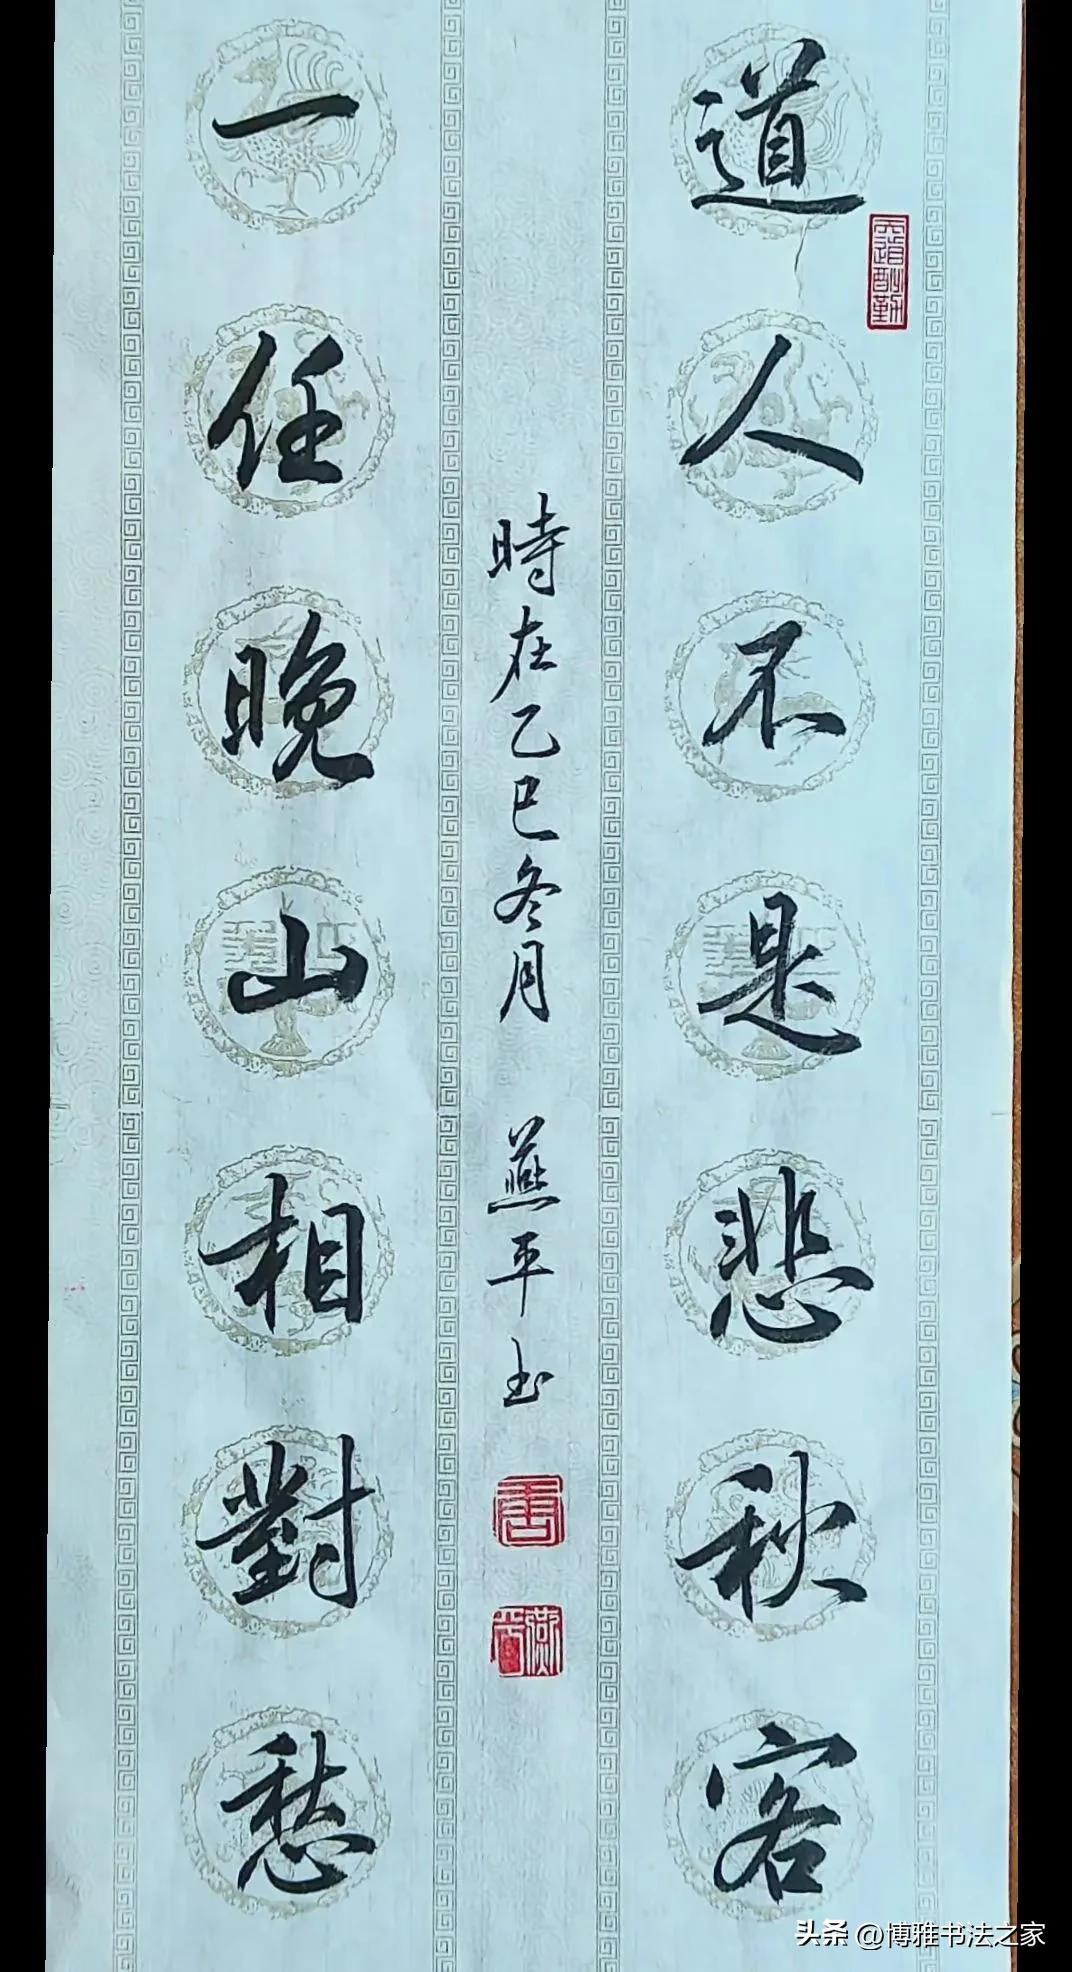 道人不是悲秋客
一任晚山相對愁
時在乙巳冬月 燕平书
天道酬勤
燕平
头条 @博雅书法之家